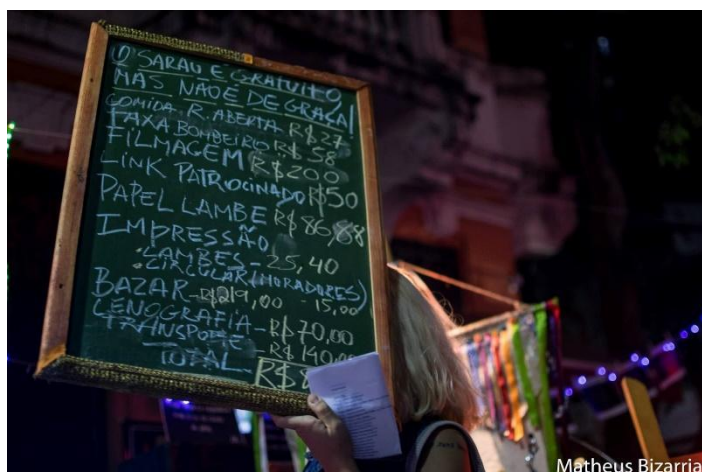 O SARAU É GRATUITO,
MAS NÃO É DE GRAÇA!
COMIDA R. ABERTA R$27
TAXA BOMBEIRO R$58
FILMAGEM R$200
LINK PATROCINADO R$50
PAPEL LAMBE R$86,88
IMPRESSÃO
LAMBES - 25,40
CIRCULAR (MORADORES)
15,00
BAZAR - R$219,00
CENOGRAFIA - R$70,00
TRANSPORTE - R$140,00
TOTAL - R$8
Matheus Bizarria